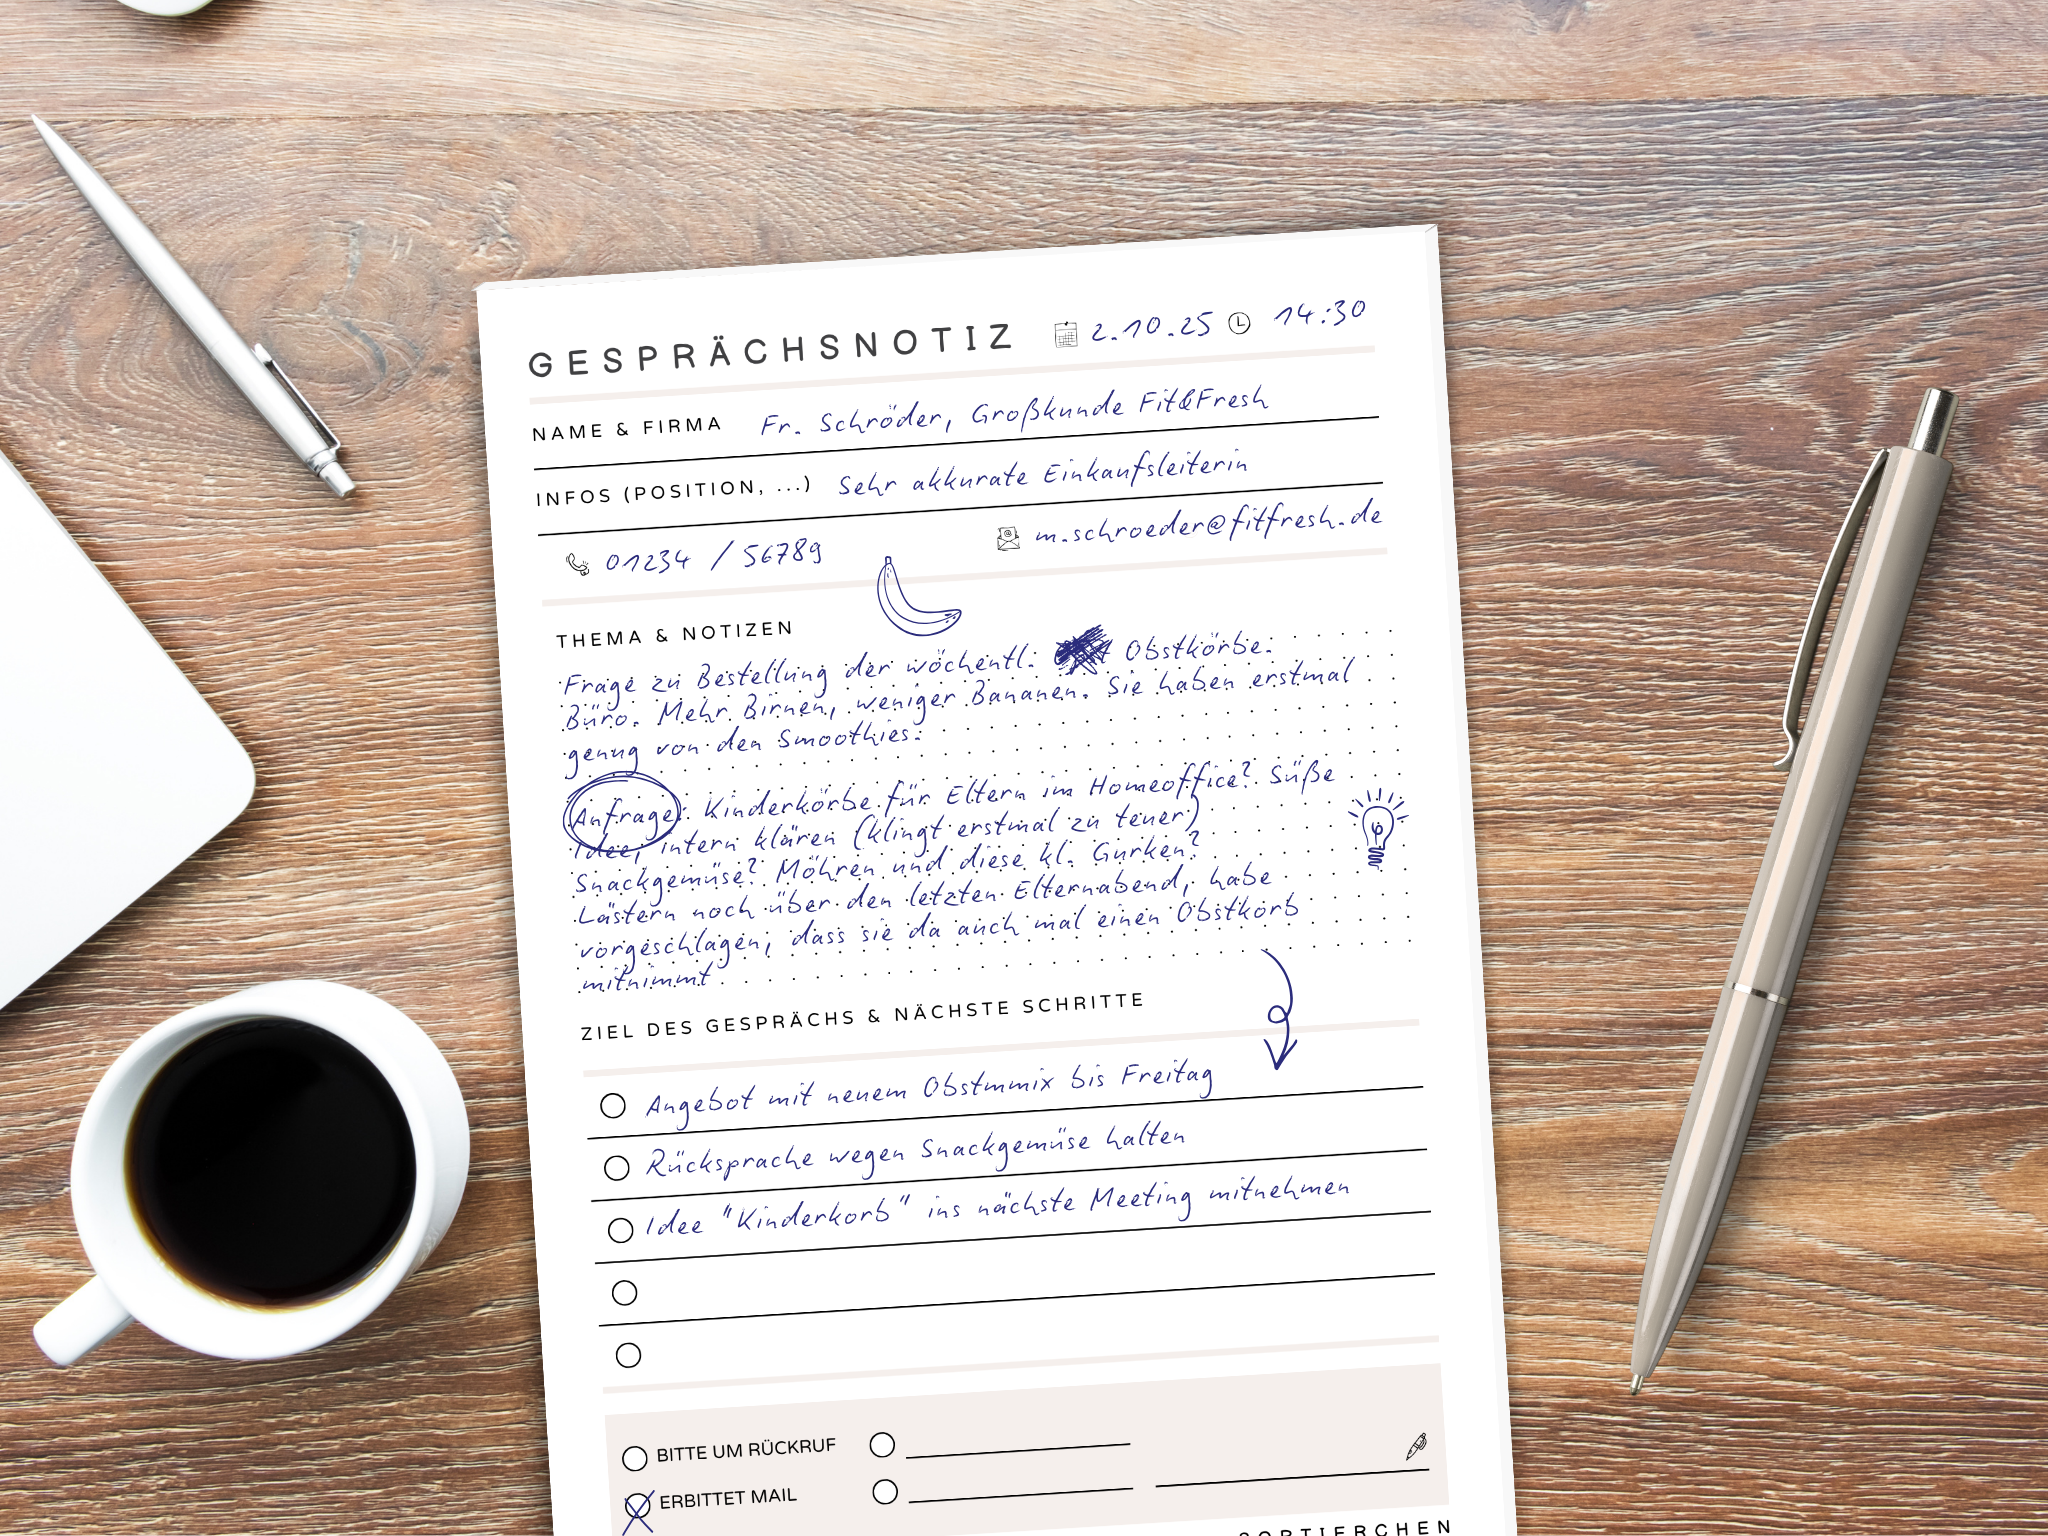 GESPRÄCHSNOTIZ 2.10.25 14:30
NAME & FIRMA Fr. Schröder, Großkunde Fit&Fresh
INFOS (POSITION, ...) Sehr akkurate Einkaufsleiterin
01234 / 56789 m.schroeder@fitfresh.de
THEMA & NOTIZEN
Frage zu Bestellung der wöchentl. Obstkörbe.
Büro. Mehr Birnen, weniger Bananen. Sie haben erstmal
genug von den Smoothies.
Anfrage: Kinderkörbe für Eltern im Homeoffice? Süße
Idee, intern klären (klingt erstmal zu teuer)
Snackgemüse? Möhren und diese kl. Gurken?
Lästern noch über den letzten Elternabend, habe
vorgeschlagen, dass sie da auch mal einen Obstkorb
mitnimmt
ZIEL DES GESPRÄCHS & NÄCHSTE SCHRITTE
Angebot mit neuem Obstmmix bis Freitag
Rücksprache wegen Snackgemüse halten
Idee "Kinderkorb" ins nächste Meeting mitnehmen
BITTE UM RÜCKRUF
ERBITTET MAIL
SORTIERCHEN